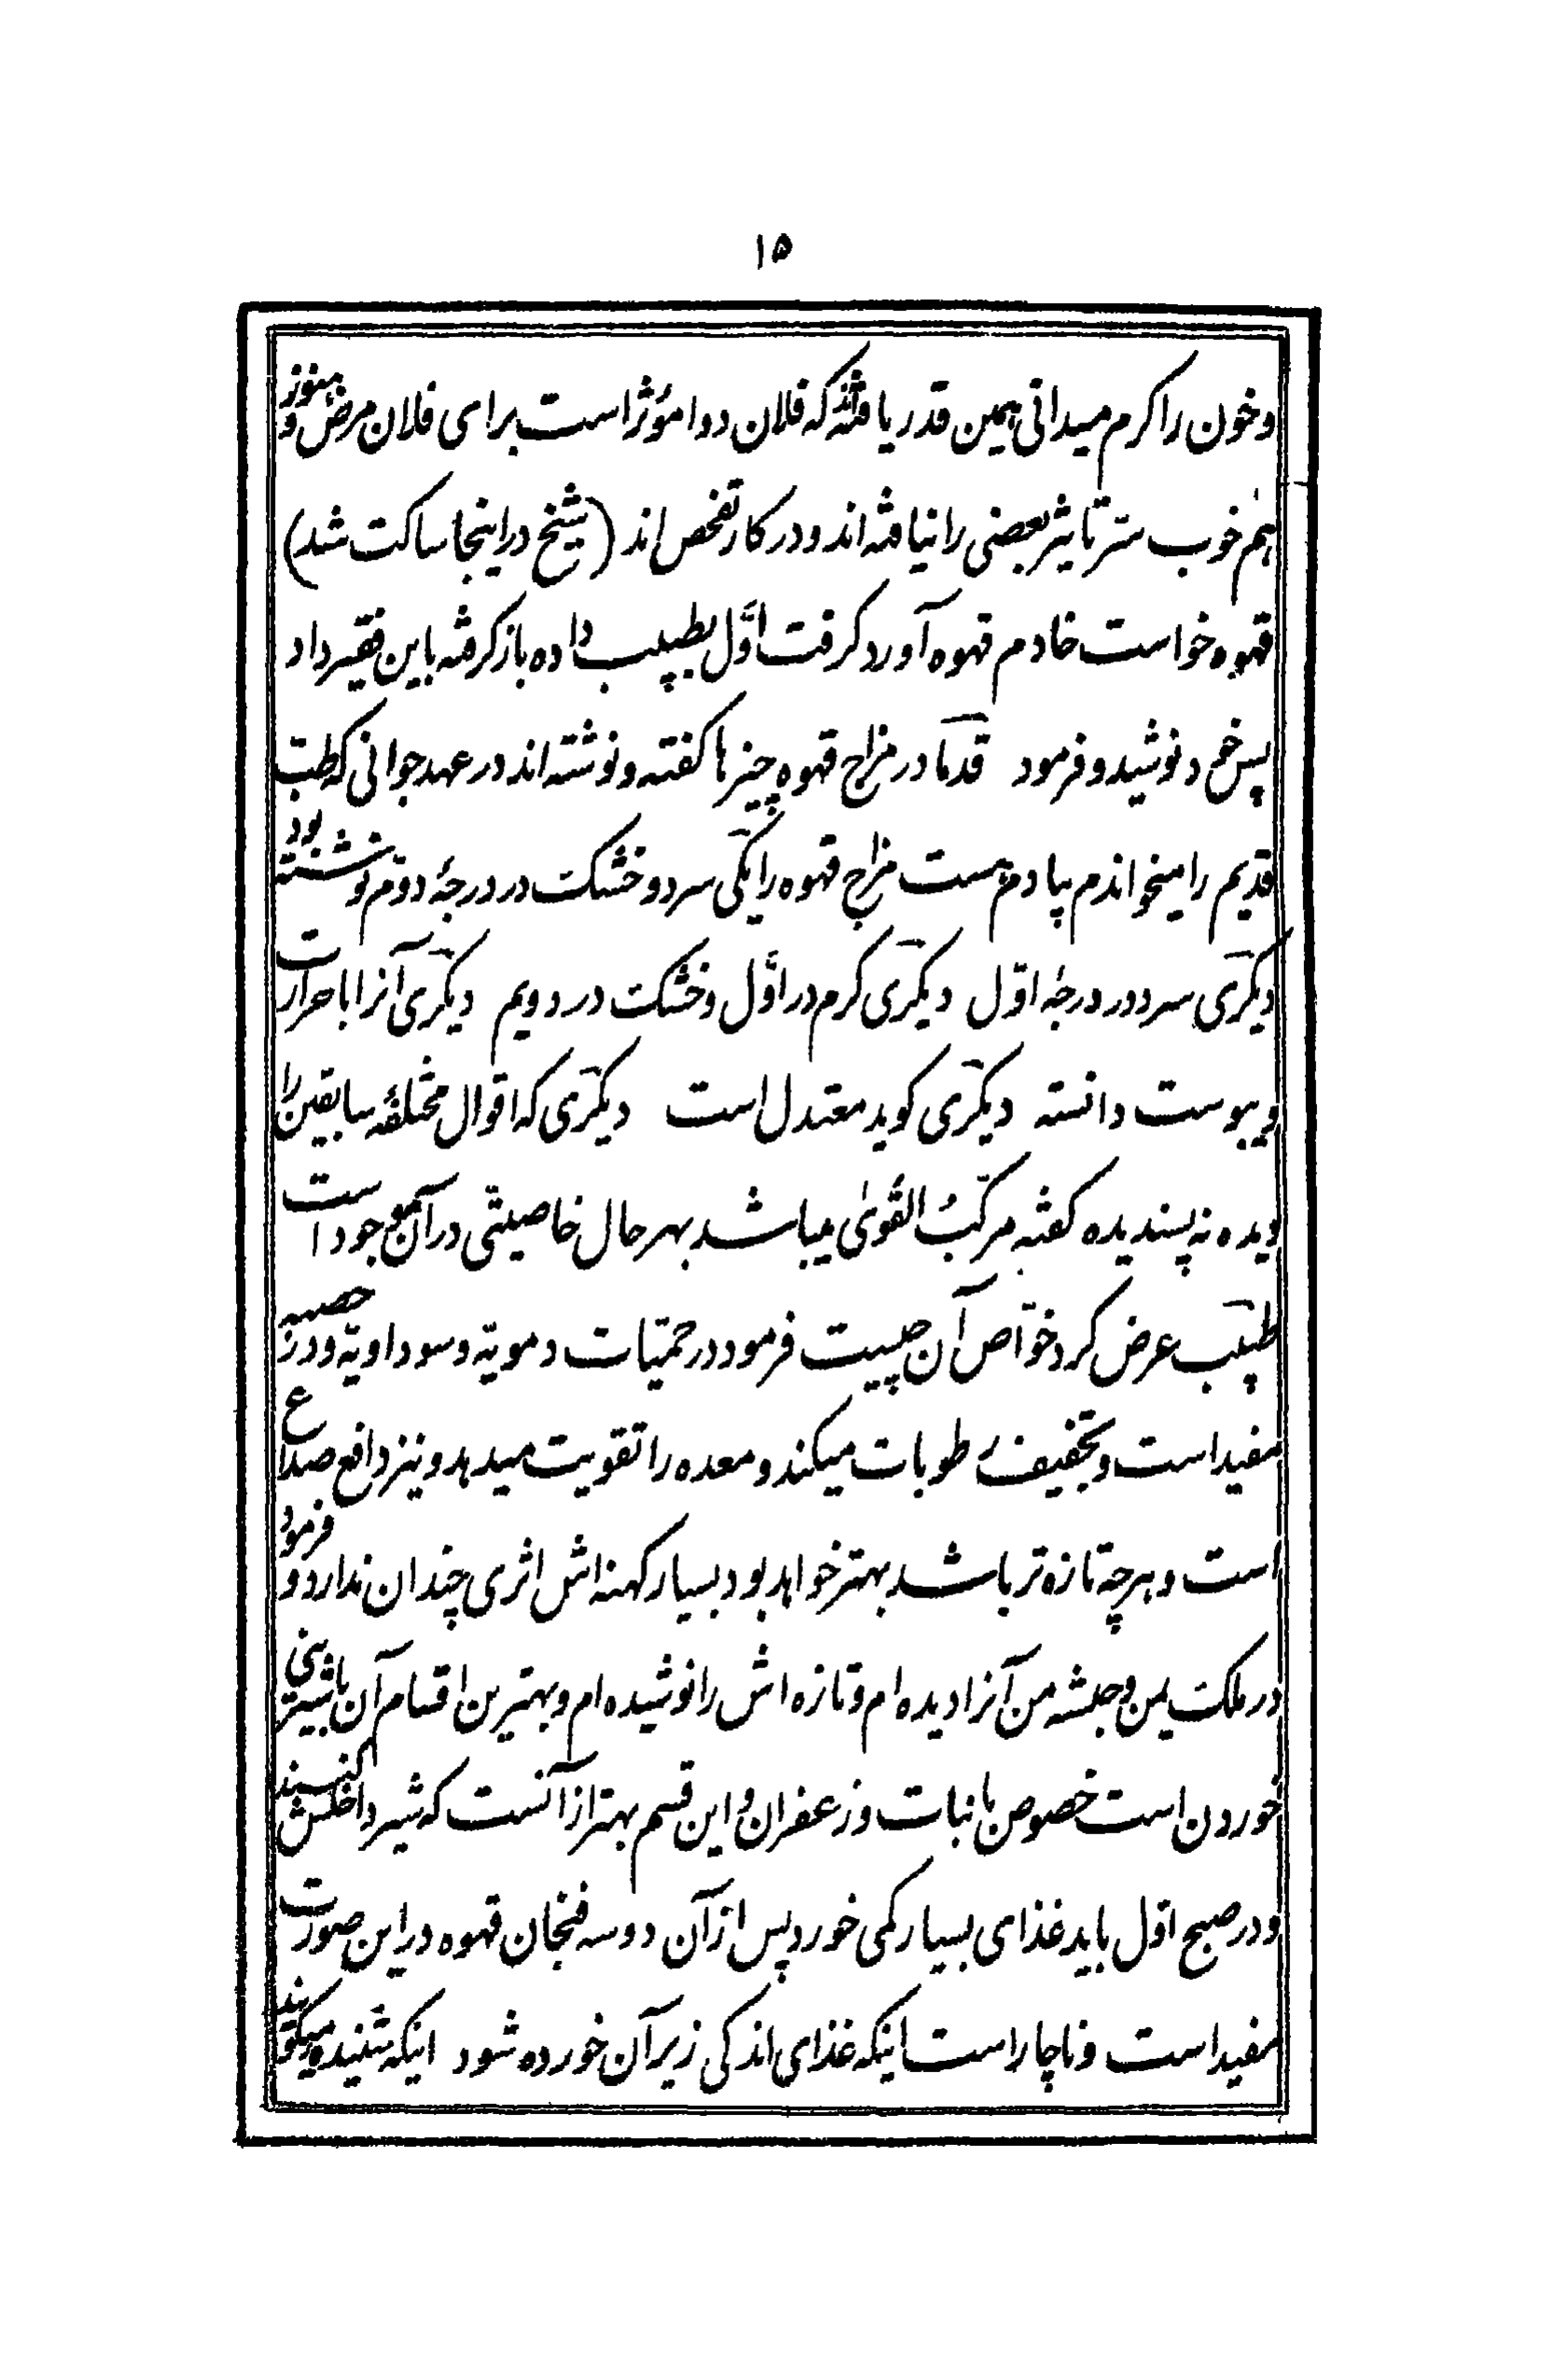 ۱۵
و خون را کرم میدانی همین قدر یافته‌اند که فلان دوا مؤثر است برای فلان مرض و هنوز
هم خوب سرّ تاثیر بعضی را نیافته اند و در کار تفحص اند (شیخ در اینجا ساکت شد)
قهوه خواست خادم قهوه آورد کرفت اوّل بطبیب داده باز کرفته باین فقیر داد
پس خود نوشید و فرمود قدما در مزاج قهوه چیزها کفته و نوشته اند در عهد جوانی که طبّ
قدیم را میخواندم بیادم هست مزاج قهوه را یکی سرد و خشک در درجهٔ دوّم نوشته بود
دیکری سرد در درجهٔ اوّل دیکری کرم در اوّل و خشک در دویم دیکری آنرا با حرارت
و یبوست دانسته دیکری کوید معتدل است دیکری که اقوال مختلفهٔ سابقین را
دیده نه پسندیده کفته مرکّبُ القُویٰ میباشد بهر حال خاصیتی در آن موجود است
طبیب عرض کرد خوّاص آن چیست فرمود در حمیّات دمویّه و سوداویّه و در حصبه
مفید است و تخفیف رطوبات میکند و معده را تقویت میدهد و نیز دافع صداع
است و هرچه تازه تر باشد بهتر خواهد بود بسیار کهنه اش اثری چندان ندارد و فرمود
در ملک یمن و حبشه من آنرا دیده ام و تازه اش را نوشیده ام و بهترین اقسام آن با شیرینی
خوردن است خصوص با نبات و زعفران و این قسم بهتر از آنست که شیر داخلش کنند
و در صبح اوّل باید غذای بسیار کمی خورد پس از آن دو سه فنجان قهوه در این صورت
مفید است و ناچار است اینکه غذای اندکی زیر آن خورده شود اینکه شنیده میکویند